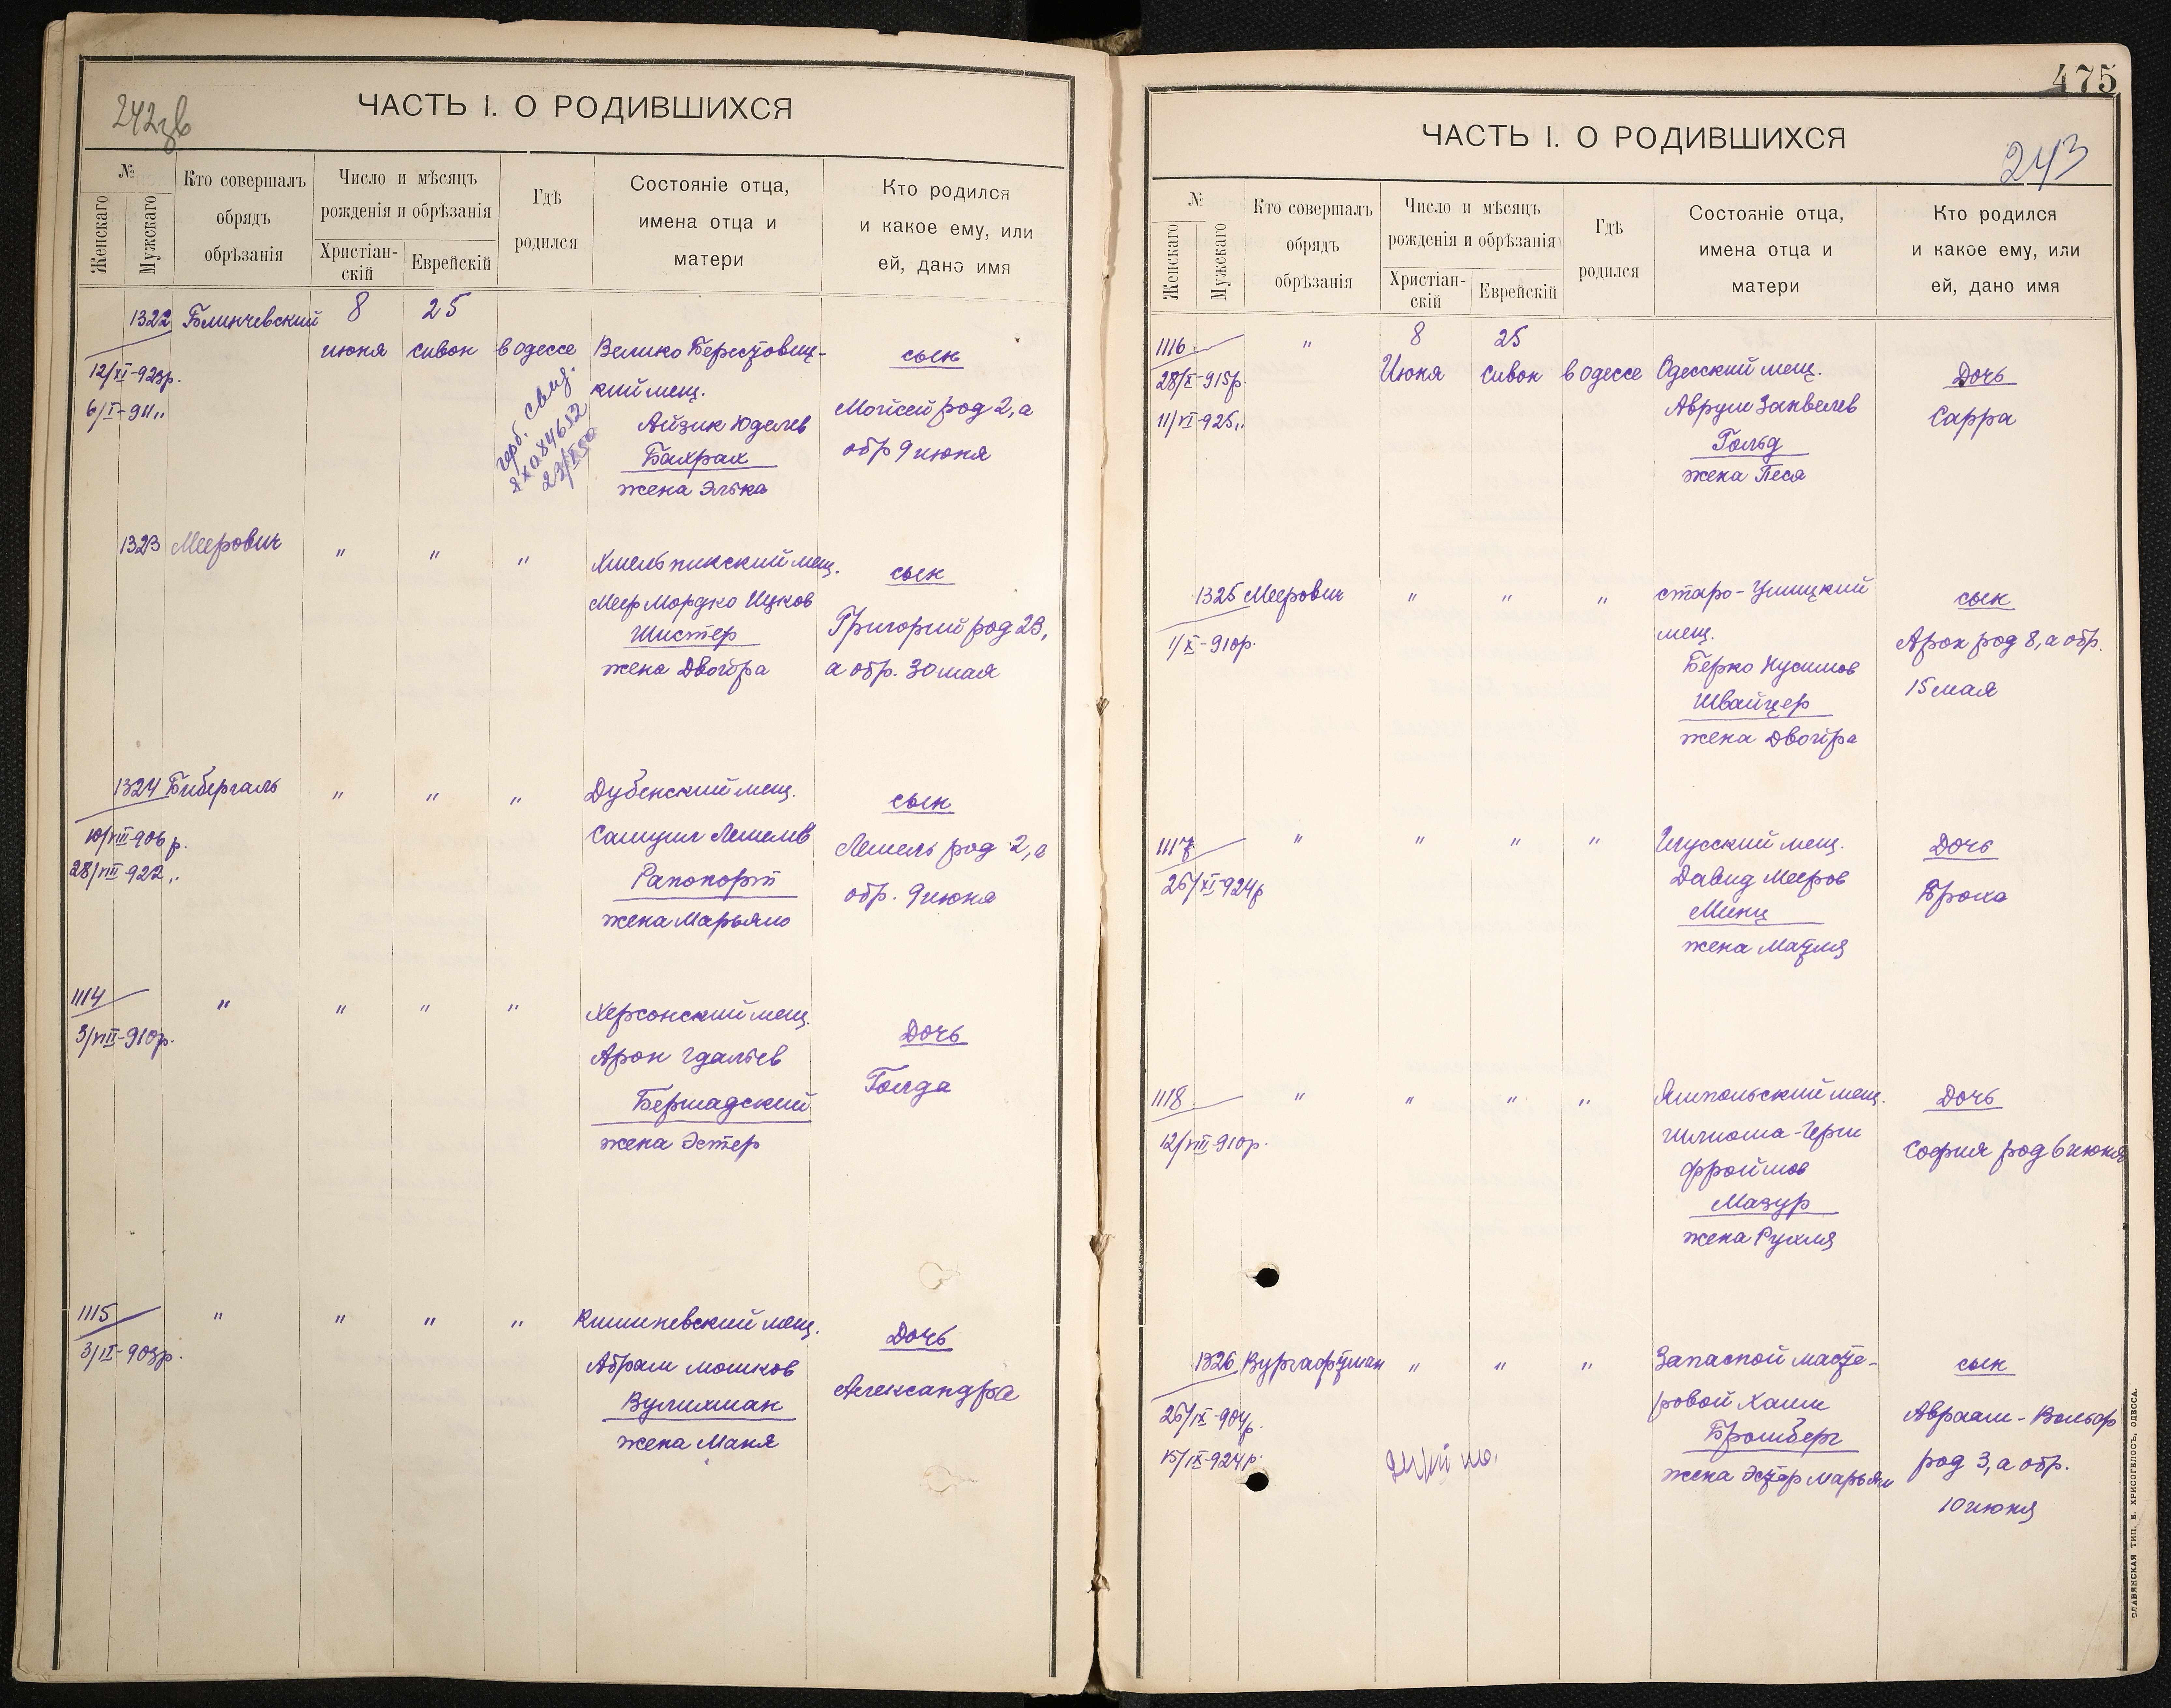 242 зв
ЧАСТЬ I. О РОДИВШИХСЯ
№
Женскаго
Мужскаго
Кто совершалъ
обрядъ
обрѣзанія
Число и мѣсяцъ
рожденія и обрѣзанія
Христіан-
скій
Еврейскій
Гдѣ
родился
Состояніе отца,
имена отца и
матери
Кто родился
и какое ему, или
ей, дано имя
1322 Блинчевский 8 25
июня сивон в Одессе Велико Берестовиц-
кий мещ.
Айзик Юделев
Бахрах
жена Элька
сын
Мойсей род 2, а
обр 9 июня
12/XI-923р.
6/I-941"
герб. свид.
ЯХ 084632
1323 Меерович " " "
Хмельникский мещ.
Меер Мордко Ицков
Шистер
жена Двойра
сын
Григорий род 23,
а обр. 30 мая
1324 Бибергаль " " "
10/VIII-906 р.
28/VIII-922"
Дубенский мещ.
Самуил Лемелев
Рапопорт
жена Марьям
сын
Лемель род 2, а
обр. 9 июня
1114 " " " "
3/VIII-910р.
Херсонский мещ.
Арон Гдальев
Бершадский
жена Эстер
Дочь
Голда
1115 " " " "
3/IX-903р.
Кишиневский мещ.
Абрам Мошков
Вулихман
жена Маня
Дочь
Александра
475
243
ЧАСТЬ I. О РОДИВШИХСЯ
№
Женскаго
Мужскаго
Кто совершалъ
обрядъ
обрѣзанія
Число и мѣсяцъ
рожденія и обрѣзанія
Христіан-
скій
Еврейскій
Гдѣ
родился
Состояніе отца,
имена отца и
матери
Кто родился
и какое ему, или
ей, дано имя
1116 " 8 25
Июня Сивон в Одессе
28/X-915р.
11/VI-925"
Одесский мещ.
Аврум Занвелев
Гольд
жена Песя
Дочь
Сарра
1325 Меерович " " "
1/X-910р.
старо-Ушицкий
мещ.
Берко Нусимов
Швайцер
жена Двойра
сын
Арон род 8, а обр.
15 мая
1117 " " " "
26/XI-924р
Игусский мещ.
Давид Мееров
Минц
жена Матля
Дочь
Броха
1118 " " " "
12/VIII-910р.
Ямпольский мещ.
Шлиома-Герш
Фроймов
Мазур
жена Рухля
Дочь
София род 6 июня
1326 Вургафтман " " "
26/IX-904р.
15/IX-924р.
Запасной масте-
ровой Хаим
Бромберг
жена Эстер Марьям
сын
Авраам-Вольф
род 3, а обр.
10 июня
СЛАВЯНСКАЯ ТИП. Е. ХРИСОГЕЛОСЪ, ОДЕССА.